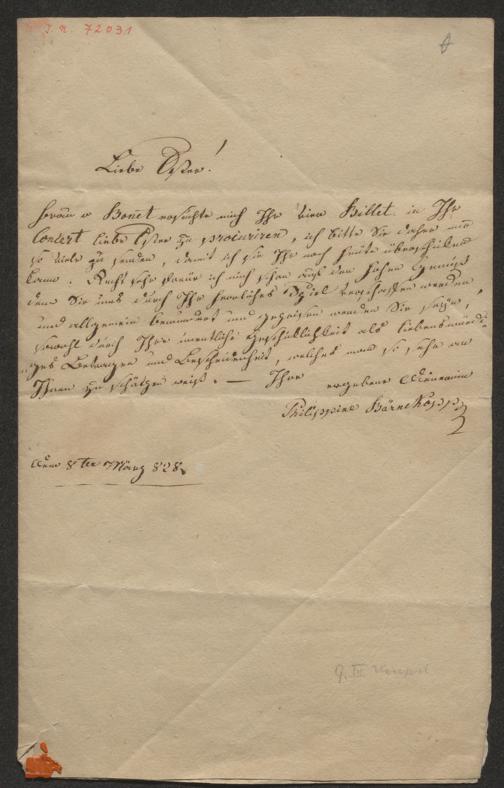 J. N. 72031
Liebe Ester!
v Bonnet ersuchte mich Ihr vier Billet in Ihr
Concert liebe Ester zu procuriren, ich bitte Sie daher mir
so viele zu senden, damit ich sie Ihr noch heute überschicken
kann. Recht sehr freue ich mich schon auf den hohen Genuß
den Sie uns durch Ihr herrliches Spiel verschaffen werden
und allgemein bewundert und gepriesen werden Sie seyn,
sowohl durch Ihre Geschicklichkeit als liebenswürdi-
ges Betragen und Bescheidenheit, welches man so sehr an
Ihnen zu schätzen weiß. — Ihre
ergebene
Philippine Bärnkopp
den 8ten März 828.